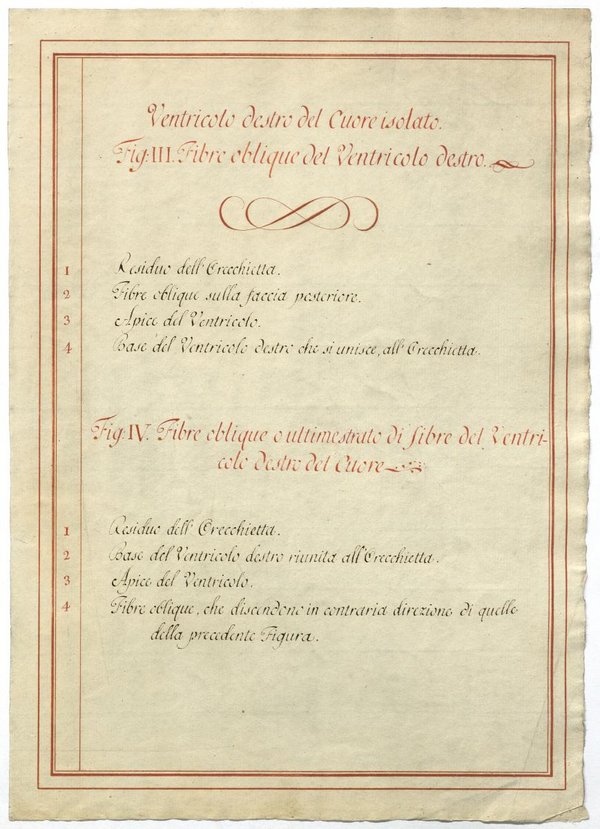 Ventricolo destro del Cuore isolato.
Fig: III. Fibre oblique del Ventricolo destro.
1 Residuo dell' Orecchietta.
2 Fibre oblique sulla faccia posteriore.
3 Apice del Ventricolo.
4 Base del Ventricolo destro che si unisce, all' Orecchietta.
Fig: IV. Fibre oblique o ultime strato di fibre del Ventri-
colo destro del Cuore
1 Residuo dell' Orecchietta.
2 Base del Ventricolo destro riunita all' Orecchietta.
3 Apice del Ventricolo.
4 Fibre oblique, che discendono in contraria direzione di quelle
della precedente Figura.